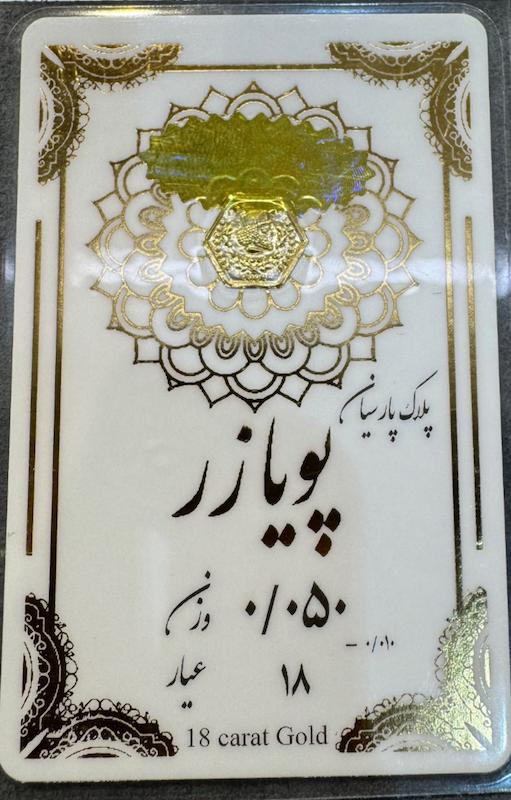 پلاک پارسیان
پویا زر
وزن ۰/۰۵۰
- ۰/۰۱۰
عیار ۱۸
18 carat Gold